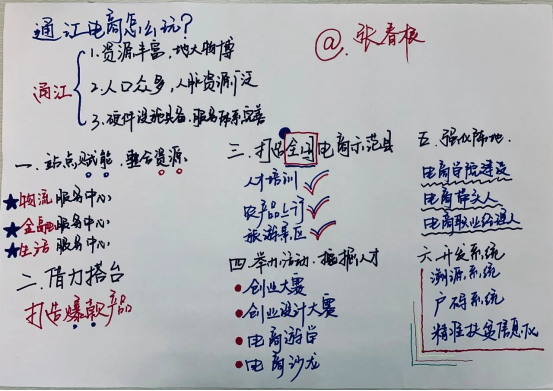 通江电商怎么玩?
@张春根
通江
1.资源丰富,地大物博
2.人口众多,人脉资源广泛
3.硬件设施具备,服务体系完善
一、站点赋能,整合资源
★物流服务中心
★金融服务中心
★生活服务中心
二、借力搭台
打造爆款产品
三、打造全国电商示范县
人才培训
农产品上行
旅游景区
四、举办活动,挖掘人才
创业大赛
创业设计大赛
电商游学
电商沙龙
五、强化阵地
电商学院建设
电商带头人
电商职业经理人
六、开发系统
溯源系统
户码系统
精准扶贫信息化